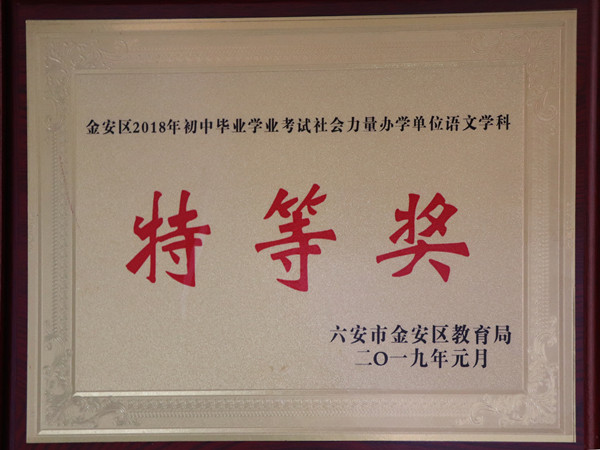 金安区2018年初中毕业学业考试社会力量办学单位语文学科
特等奖
六安市金安区教育局
二〇一九年元月